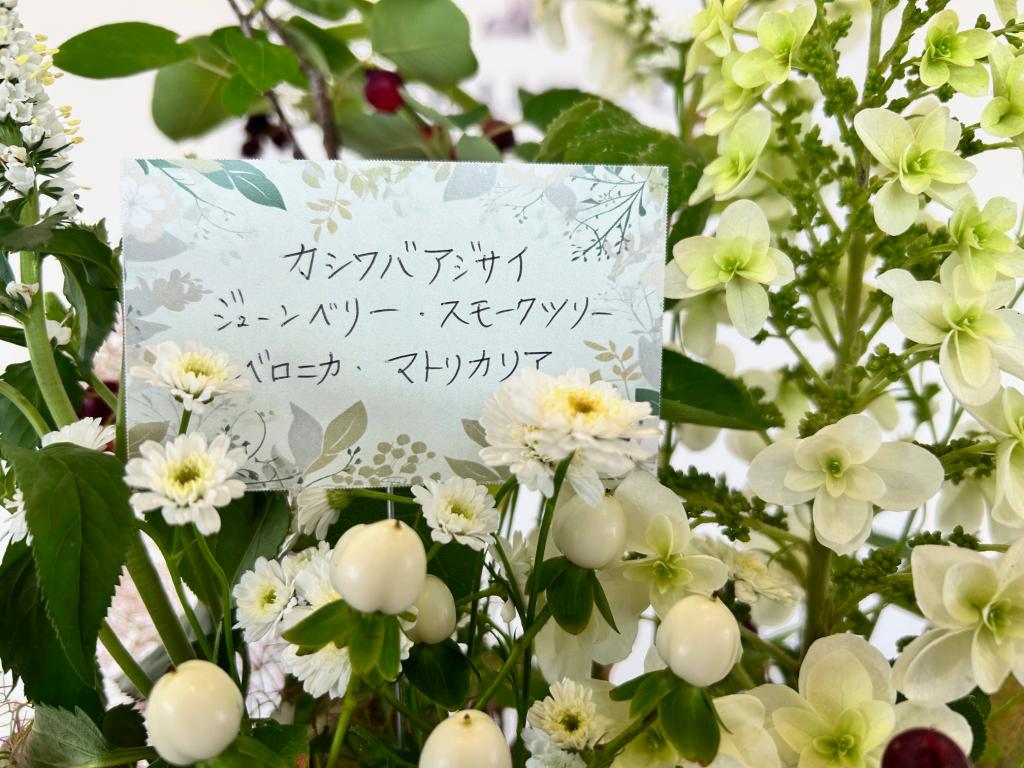 カシワバアジサイ
ジューンベリー・スモークツリー
ベロニカ・マトリカリア